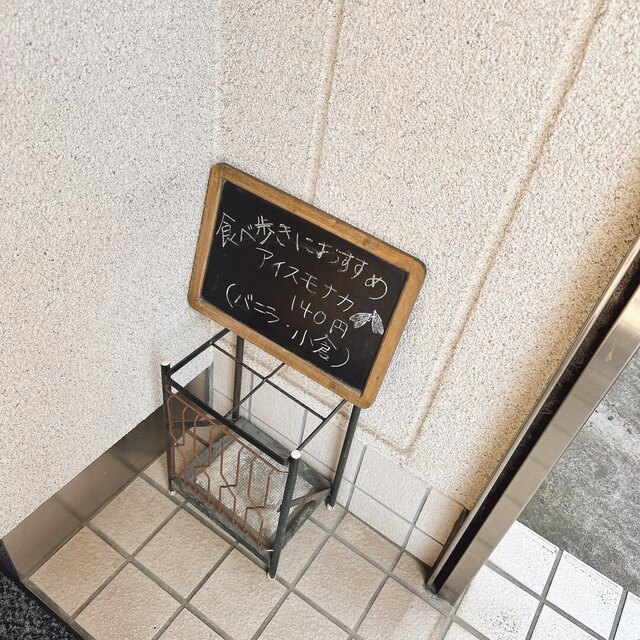 食べ歩きにおすすめ
アイスモナカ
140円
(バニラ・小倉)